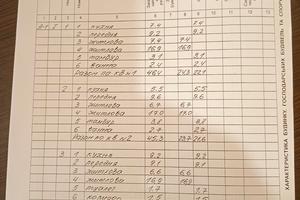 1 2 3 4 5 6 7 8 9 10 11 12 13
А-1 2 1 1 кухня 7,4 7,4
2 передня 9,2 9,2
3 житлова 7,4 7,4
4 житлова 16,9 16,9
5 тамбур 3,1 3,1
6 ванна 2,4 2,4
Разом по кв №1 46,4 24,3 22,1
2 1 кухня 5,5 5,5
2 передня 9,6 9,6
3 житлова 6,7 6,7
4 житлова 17,0 17,0
5 тамбур 3,8 3,8
6 ванна 2,7 2,7
Разом по кв №2 45,3 23,7 21,6
3 1 кухня 9,2 9,2
2 передня 9,1 9,1
3 житлова 6,6 6,6
4 житлова 16,9 16,9
5 туалет 1,7 1,7
6 1,5 1,5
ХАРАКТЕРИСТИКА БУДИНКУ, ГОСПОДАРСЬКИХ БУДІВЕЛЬ ТА